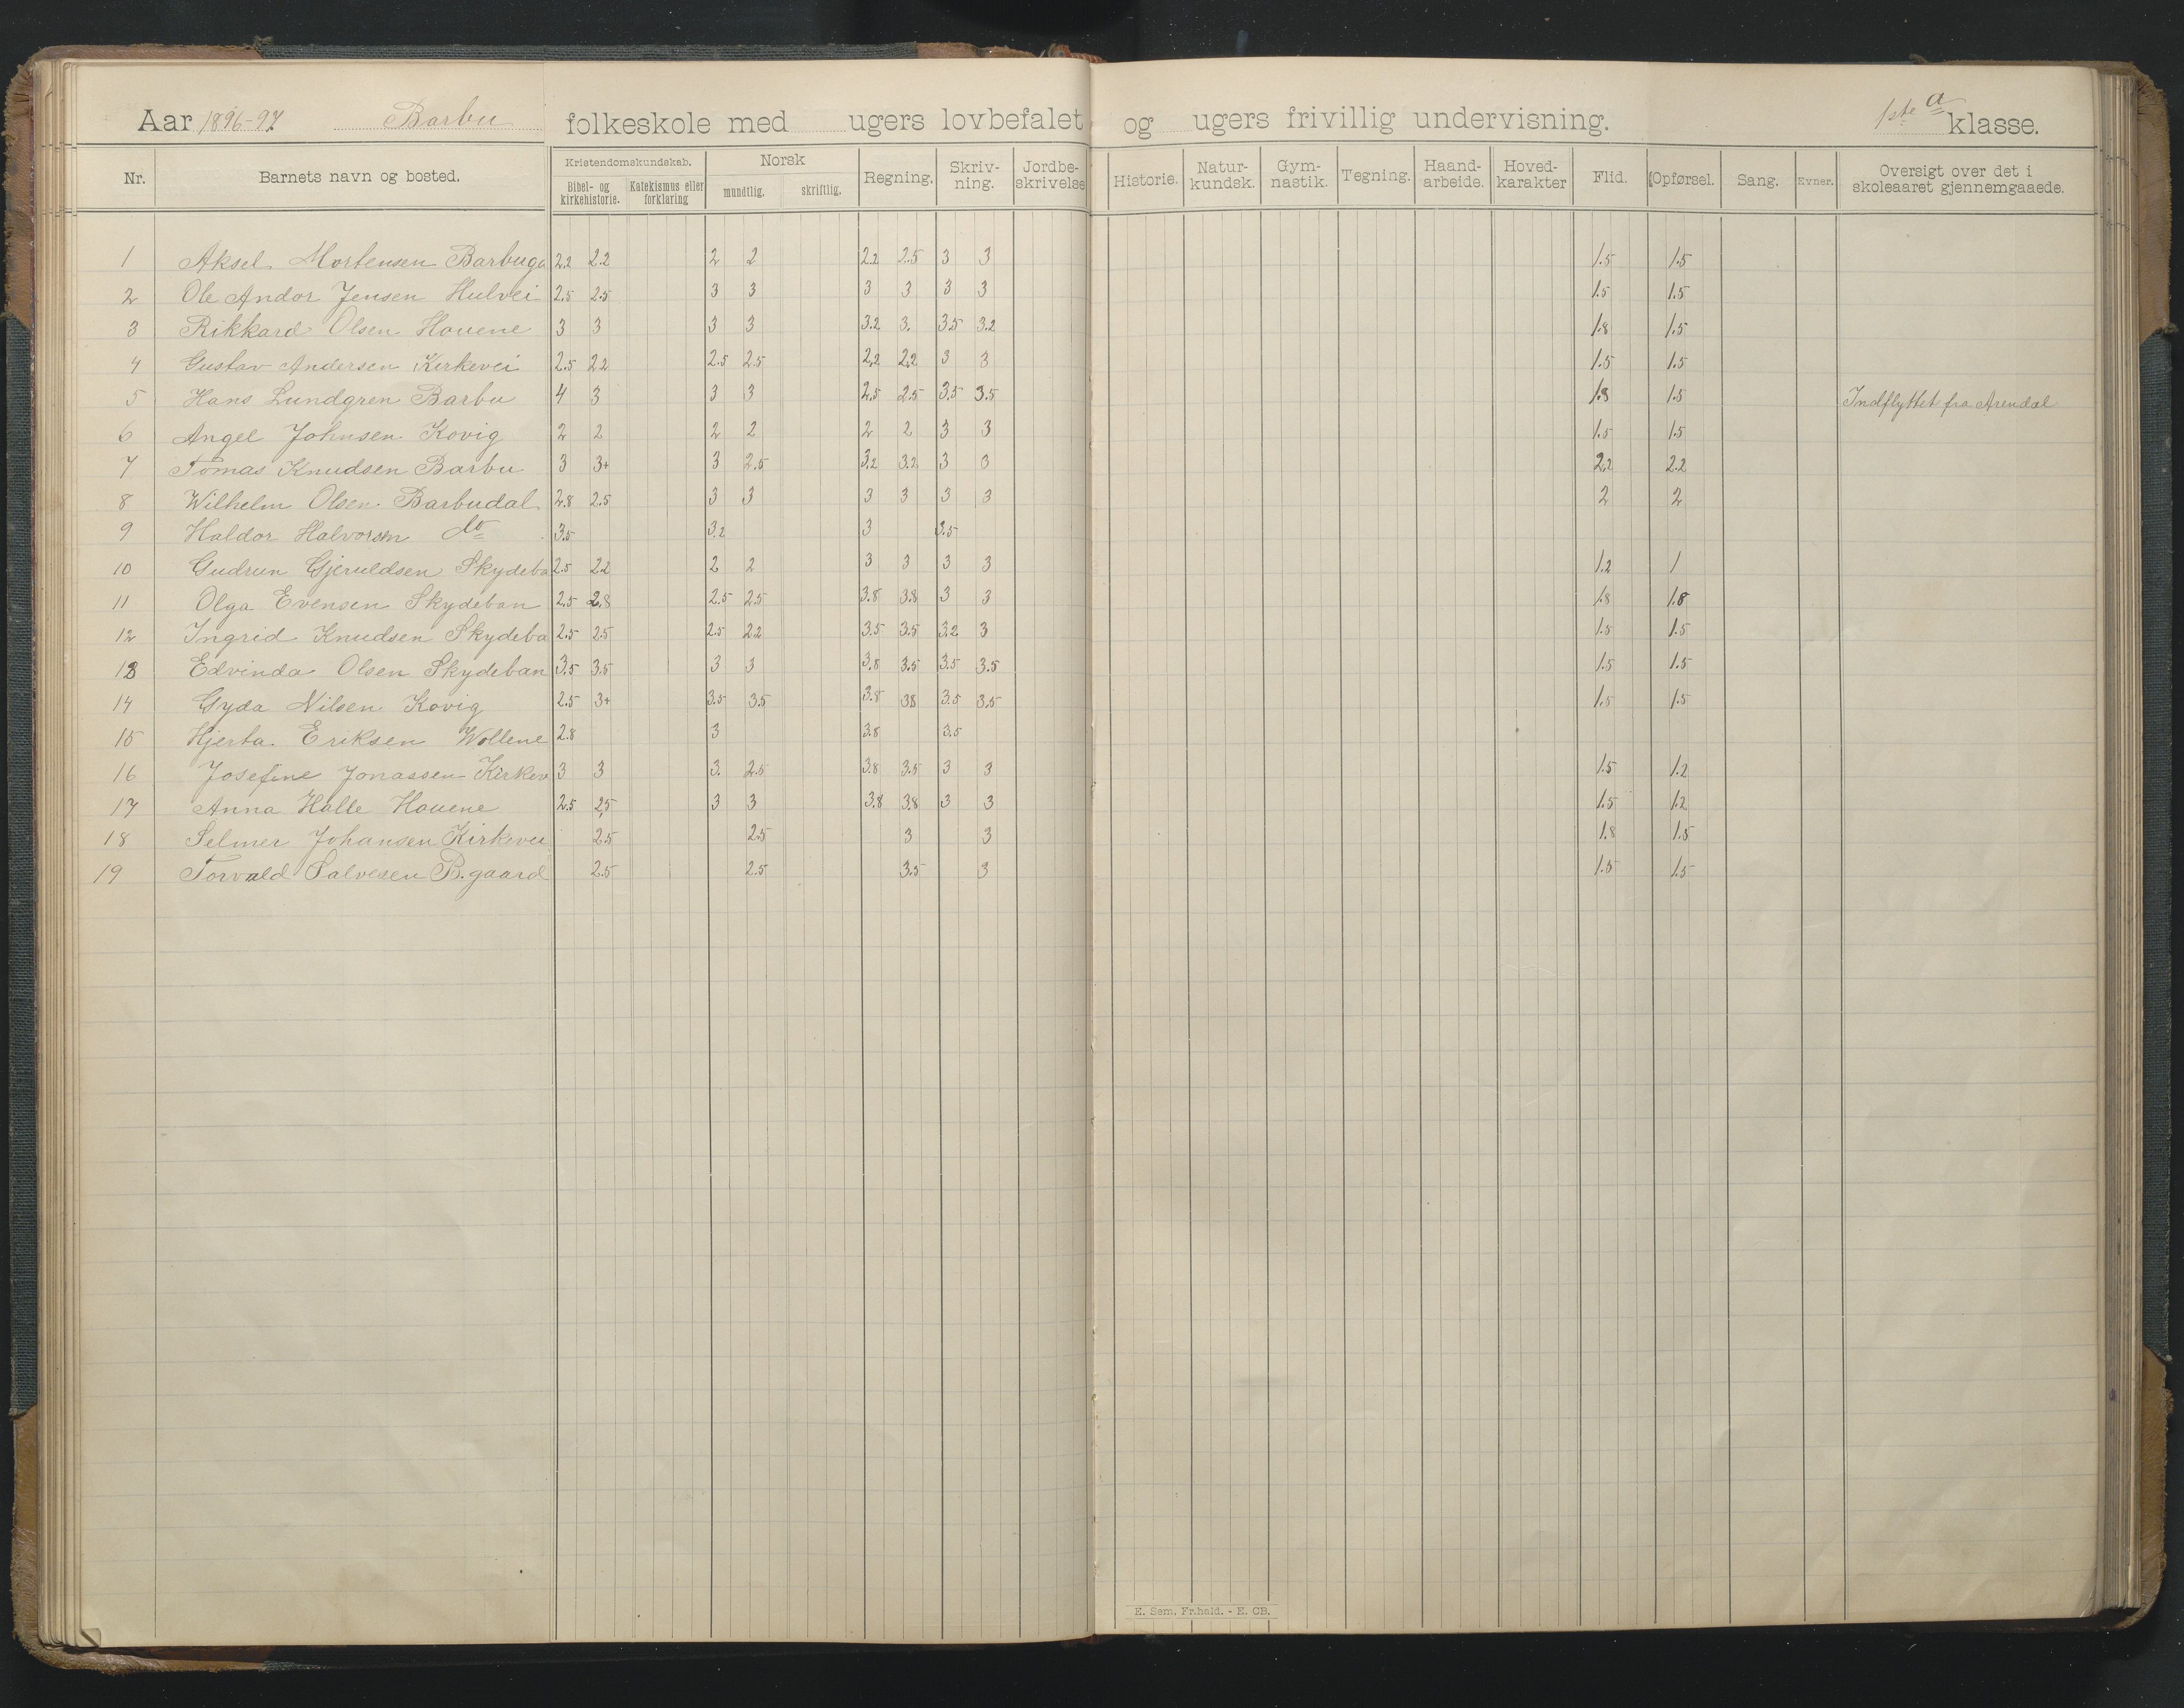 Aar 1896-97 Barbu folkeskole med ugers lovbefalet og ugers frivillig undervisning. 1ste a klasse.
Nr. Barnets navn og bosted. Kristendomskundskab. Bibel- og kirkehistorie. Katekismus eller forklaring Norsk mundtlig. skriftlig. Regning. Skriv-ning. Jordbe-skrivelse Historie. Natur-kundsk. Gym-nastik. Tegning. Haand-arbeide. Hoved-karakter Flid. Opførsel. Sang. Evner. Oversigt over det i skoleaaret gjennemgaaede.
1 Aksel Mortensen Barbuga 2.2 2.2 2 2 2.2 2.5 3 3 1.5 1.5
2 Ole Andor Jensen Hulvei 2.5 2.5 3 3 3 3 3 3 1.5 1.5
3 Rikkard Olsen Houene 3 3 3 3 3.2 3. 3.5 3.2 1.8 1.5
4 Gustav Andersen Kirkevei 2.5 2.2 2.5 2.5 2.2 2.2 3 3 1.5 1.5
5 Hans Lundgren Barbu 4 3 3 3 2.5 2.5 3.5 3.5 1.8 1.5 Indflyttet fra Arendal
6 Angel Johnsen Kovig 2 2 2 2 2 2 3 3 1.5 1.5
7 Tomas Knudsen Barbu 3 3+ 3 2.5 3.2 3.2 3 3 2.2 2.2
8 Wilhelm Olsen Barbudal 2.8 2.5 3 3 3 3 3 3 2 2
9 Haldor Halvorsen do 3.5 3.2 3 3.5
10 Gudrun Gjeruldsen Skydeba 2.5 2.2 2 2 3 3 3 3 1.2 1
11 Olga Evensen Skydeban 2.5 2.8 2.5 2.5 3.8 3.8 3 3 1.8 1.8
12 Ingrid Knudsen Skydeba 2.5 2.5 2.5 2.2 3.5 3.5 3.2 3 1.5 1.5
13 Edvinda Olsen Skydeban 3.5 3.5 3 3 3.8 3.5 3.5 3.5 1.5 1.5
14 Gyda Nilsen Kovig 2.5 3+ 3.5 3.5 3.8 3.8 3.5 3.5 1.5 1.5
15 Hjerta Eriksen Wollene 2.8 3 3.8 3.5
16 Josefine Jonassen Kirkev 3 3 3. 2.5 3.8 3.5 3 3 1.5 1.2
17 Anna Halle Houene 2.5 2.5 3 3 3.8 3.8 3 3 1.5 1.2
18 Selmer Johansen Kirkevei 2.5 2.5 3 3 1.8 1.5
19 Torvald Salvesen B.gaard 2.5 2.5 3.5 3 1.5 1.5
E. Sem, Fr.hald. - E. CB.